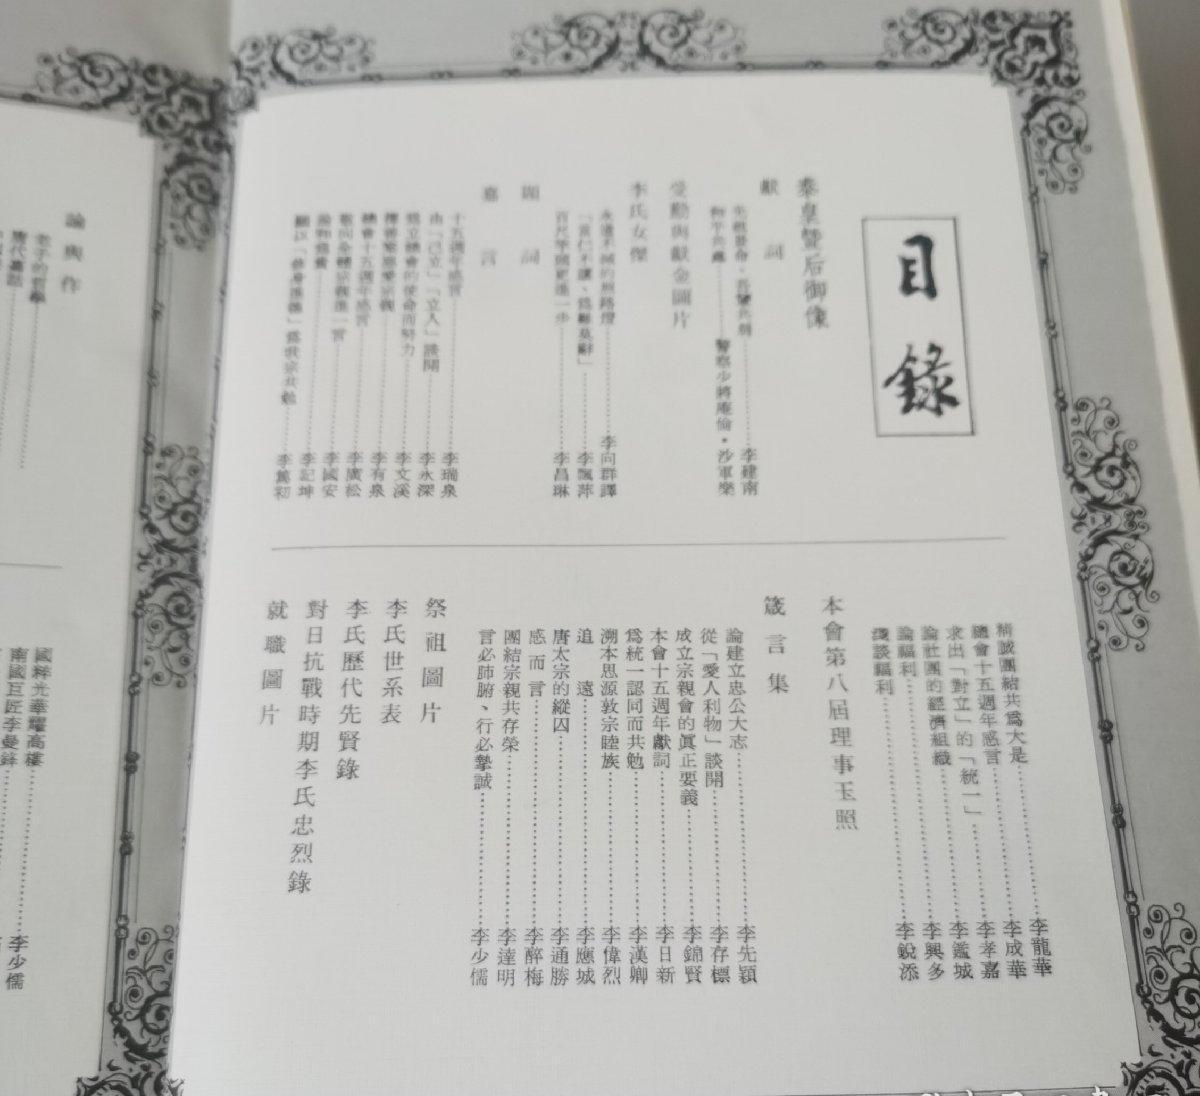 目錄
泰皇暨后御像
獻詞
李建南
和平共處……警察少將庵倫・沙軍樂
受勳與獻金圖片
李氏女傑
永遠不滅的照路燈……李向群譯
「當仁不讓、爲難莫辭」……李飄萍
百尺竿頭更進一步……李昌琳
題詞
嘉言
十五週年感言……李瑞泉
由「己立」「立人」談開……李永深
爲立總會的使命而努力……李文溪
李有泉
總會十五週年感言……李廣松
敬向全體宗親進一言……李國安
論和爲貴……李記坤
願以「修身進德」爲我宗共勉……李篤初
精誠團結共爲大是……李龍華
總會十五週年感言……李成華
求出「對立」的「統一」……李孝嘉
論社團的經濟組織……李鑑城
論福利……李興多
淺談福利……李銳添
本會第八屆理事玉照
箴言集
論建立忠公大志……李先穎
從「愛人利物」談開……李存標
成立宗親會的眞正要義……李錦賢
本會十五週年獻詞……李日新
爲統一認同而共勉……李漢卿
溯本思源敦宗睦族……李偉烈
追遠……李應城
唐太宗的縱囚……李通勝
感而言……李醉梅
團結宗親共存榮……李達明
言必肺腑、行必摯誠……李少儒
祭祖圖片
李氏世系表
李氏歷代先賢錄
對日抗戰時期李氏忠烈錄
就職圖片
論與作
老子的哲學
唐代嘉話
國粹光華耀高樓……李少儒
南國巨匠李曼鋒